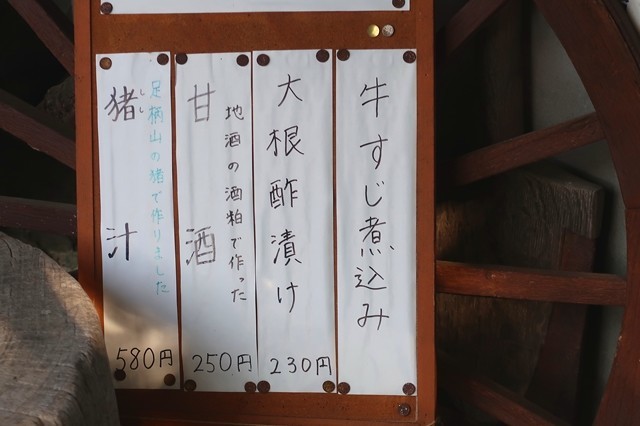 牛すじ煮込み
大根酢漬け
230円
地酒の酒粕で作った
甘酒
250円
足柄山の猪で作りました
しし
猪汁
580円